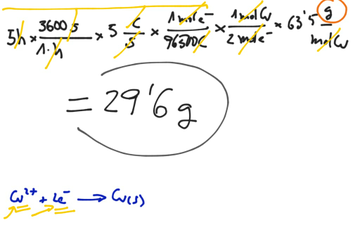 5h × 3600 s / 1 h × 5 C / s × 1 mol e⁻ / 96500 C × 1 mol Cu / 2 mol e⁻ × 63'5 g / mol Cu
= 29'6 g
Cu²⁺ + 2e⁻ → Cu(s)